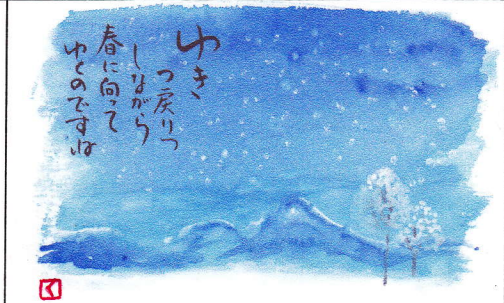 ゆき
つ戻りつ
しながら
春に向って
ゆくのですね
く